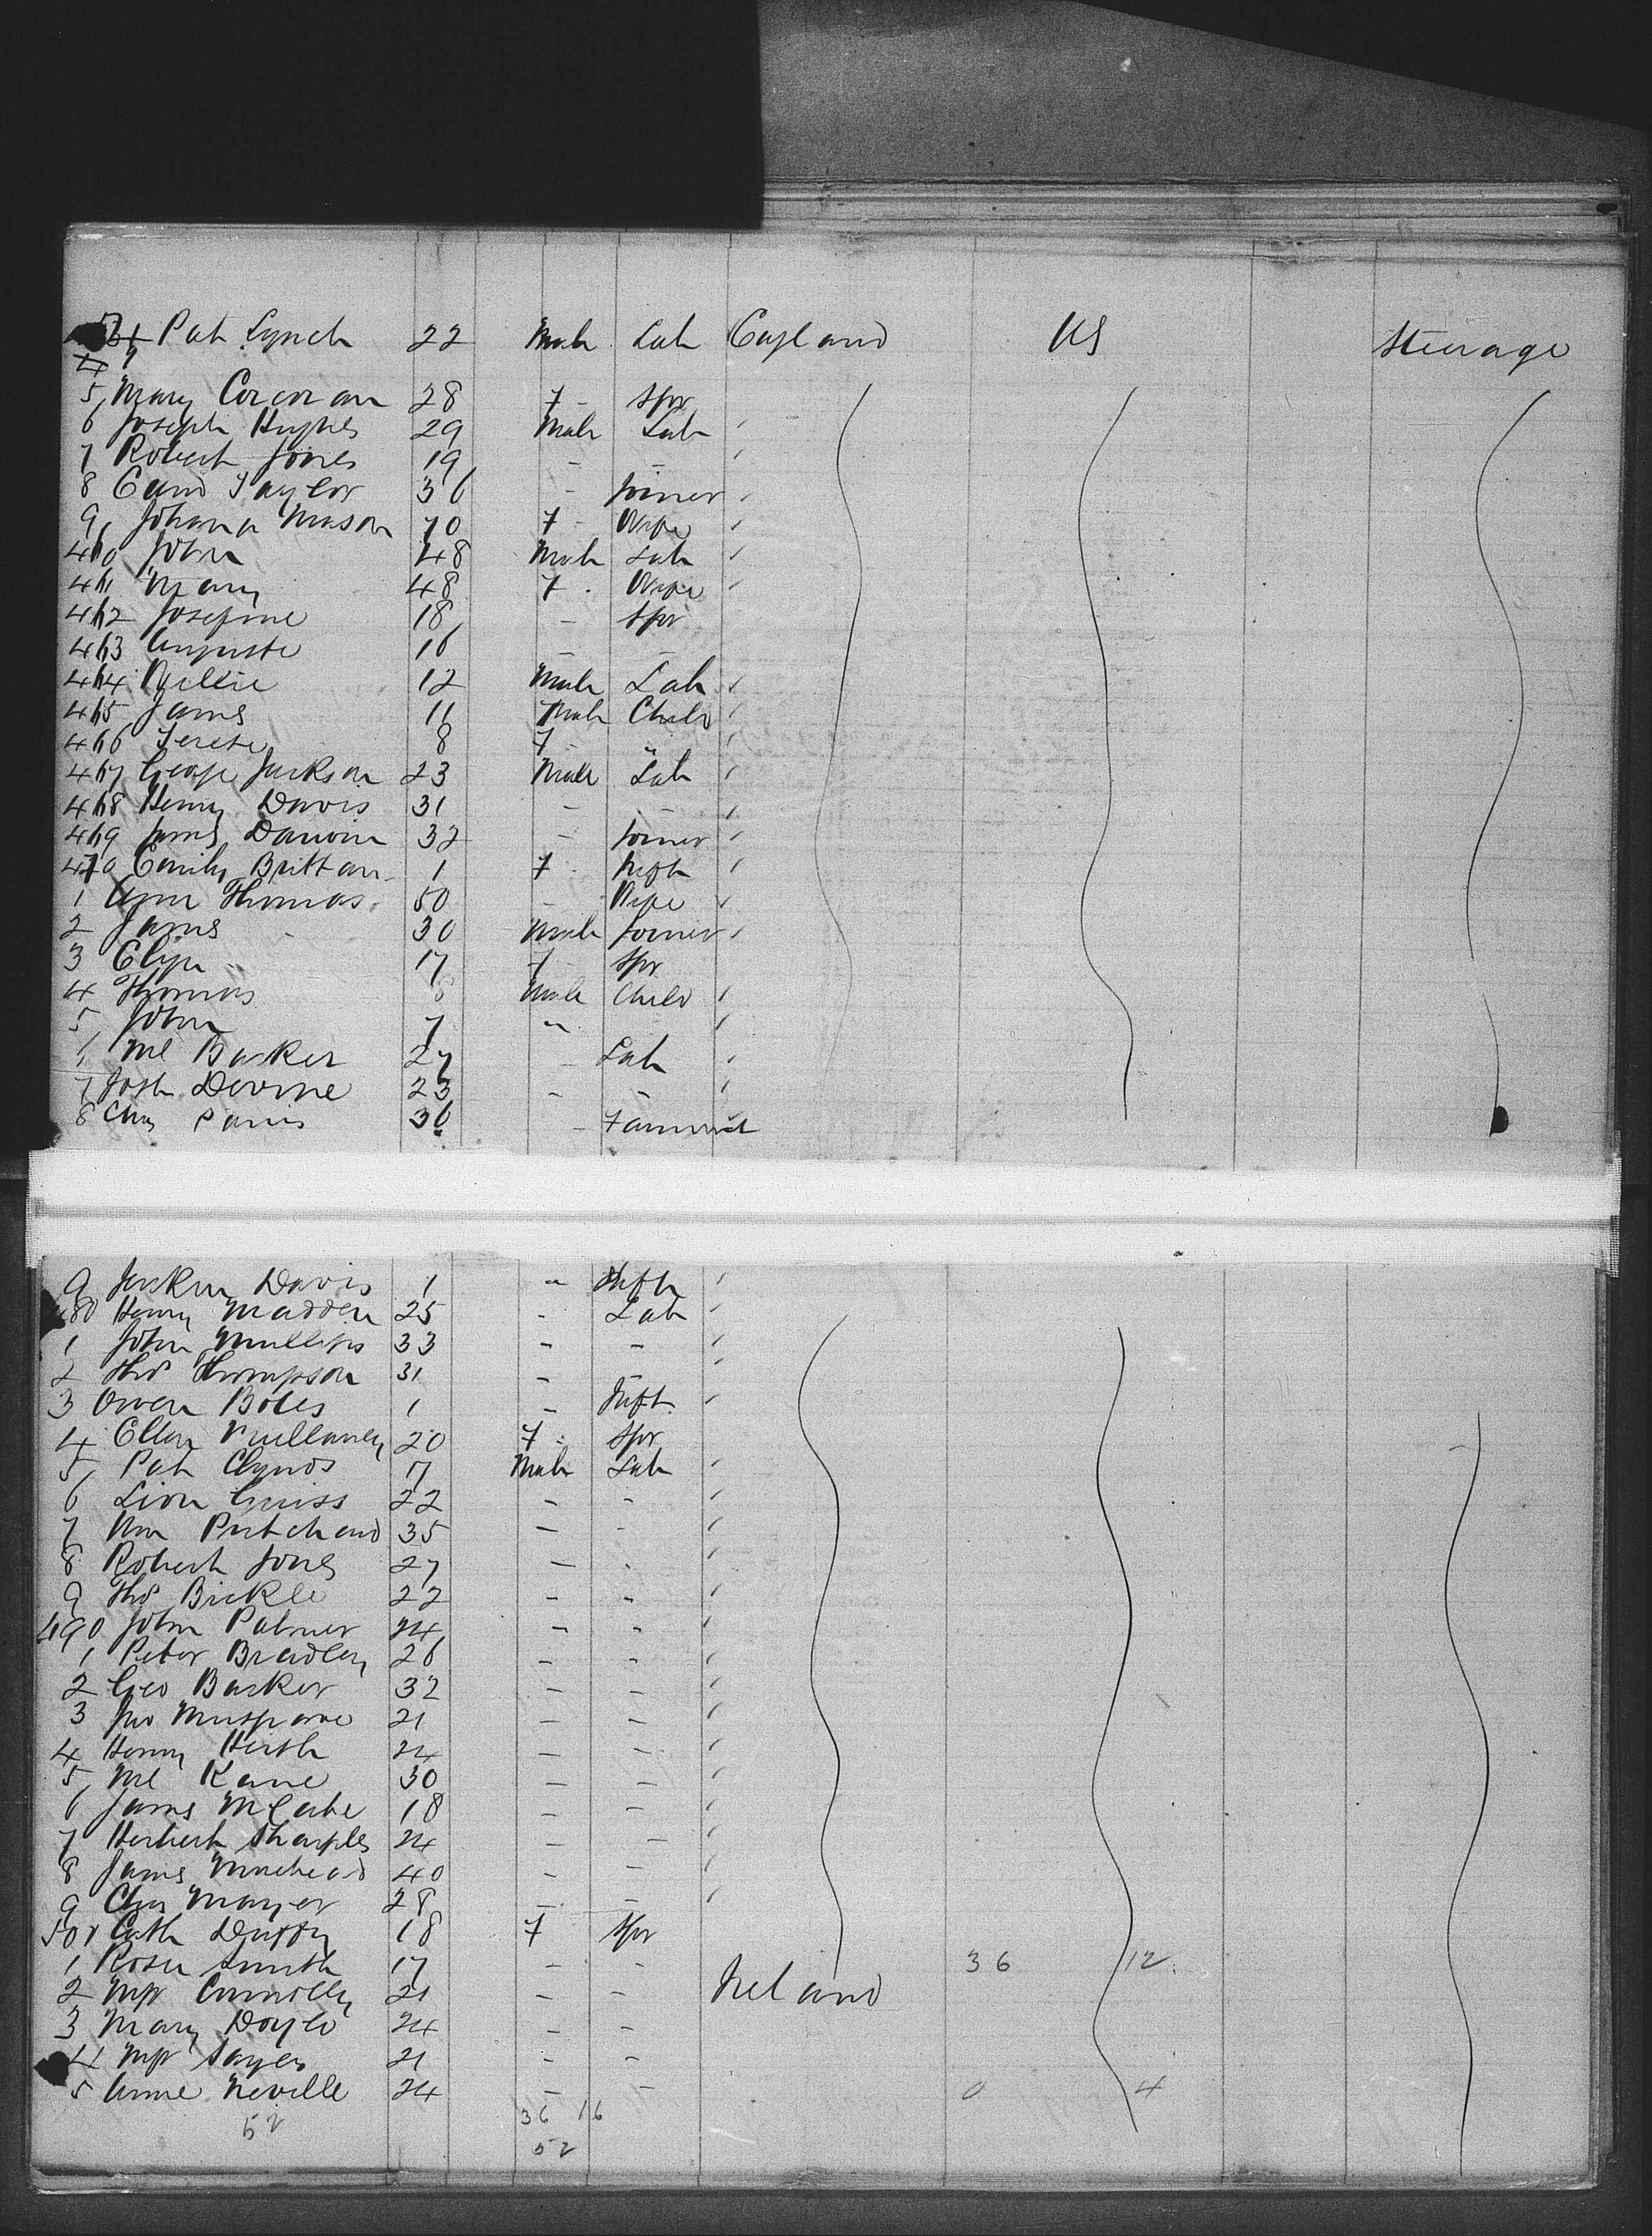 Pat Lynch 22 Male Lab England US Steerage
4
5 Mary Corcoran 28 F - Spr
6 Joseph Hughes 29 Male Lab
7 Robert Jones 19 - -
8 Taylor 36 - Joiner
9 Johana Mason 70 F - Wife
460 John 48 Male Lab
461 Mary 48 F Wife
462 Josefine 18 - Spr
463 Auguste 16 - -
464 Nellie 12 Male Lab
465 James 11 Male Child
466 Terese 8 F - "
467 George Jackson 23 Male Lab
468 Henry Davis 31 - -
469 James 32 - Joiner
470 Emily Brittan 1 F Inft
1 Ann Thomas 50 - Wife
2 James 30 Male Joiner
3 Eliza 17 F Spr
4 Thomas Male Child
5 John 7 "
6 Ml Barker 27 - Lab
7 Josh Devine 23 - -
8 Chas 36 -
9 Davis 1 " Inft
480 Henry Madden 25 - Lab
1 John 33 - -
2 Thos Thompson 31 - -
3 Owen Boles 1 - Inft
4 Ellen Mullaney 20 F Spr
5 Pat 17 Male Lab
6 22 - -
7 Wm Pritchard 35 - -
8 Robert Jones 27 - -
9 Thos Bickle 22 - -
490 John Palmer 24 - -
1 Peter Bradley 26 - -
2 Geo Barker 32 - -
3 Jno Musgrave 21 - -
4 Henry 24 - -
5 Ml Kane 30 - -
6 James McCabe 18 - -
7 Herbert Sharples 24 - -
8 James Muirhead 40 - -
9 Chas Mayer 28 - -
500 Cath Duffy 18 F Spr
1 Rose Smith 17 - - 36 12
2 Connolly 21 - - Ireland
3 Mary Doyle 24 - -
4 21 - -
5 Anne Neville 24 - - 0 4
36 16
52
52